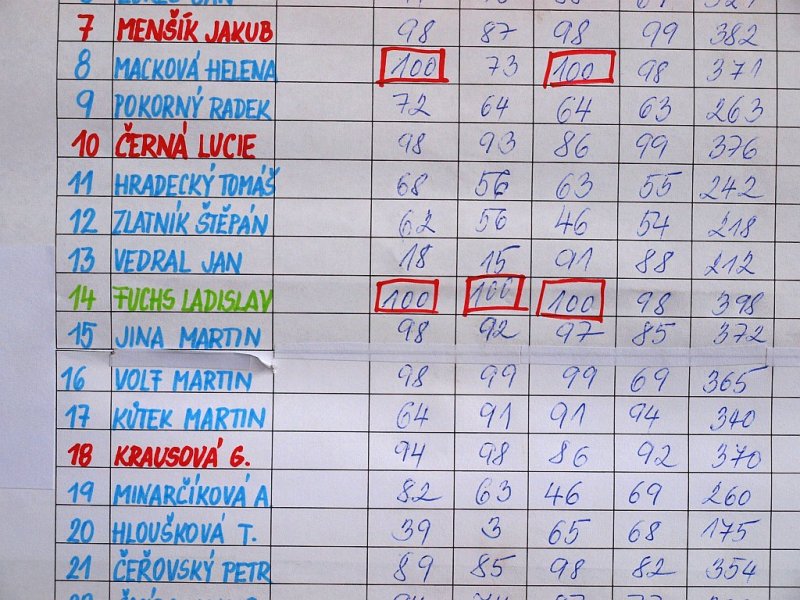 7 MENŠÍK JAKUB 98 87 98 99 382
8 MACKOVÁ HELENA 100 73 100 98 371
9 POKORNÝ RADEK 72 64 64 63 263
10 ČERNÁ LUCIE 98 93 86 99 376
11 HRADECKÝ TOMÁŠ 68 56 63 55 242
12 ZLATNÍK ŠTĚPÁN 62 56 46 54 218
13 VEDRAL JAN 18 15 91 88 212
14 FUCHS LADISLAV 100 100 100 98 398
15 JINA MARTIN 98 92 97 85 372
16 VOLF MARTIN 98 99 99 69 365
17 KŮTEK MARTIN 64 91 91 94 340
18 KRAUSOVÁ G. 94 98 86 92 370
19 MINARČÍKOVÁ A 82 63 46 69 260
20 HLOUŠKOVÁ T. 39 3 65 68 175
21 ČEŘOVSKÝ PETR 89 85 98 82 354